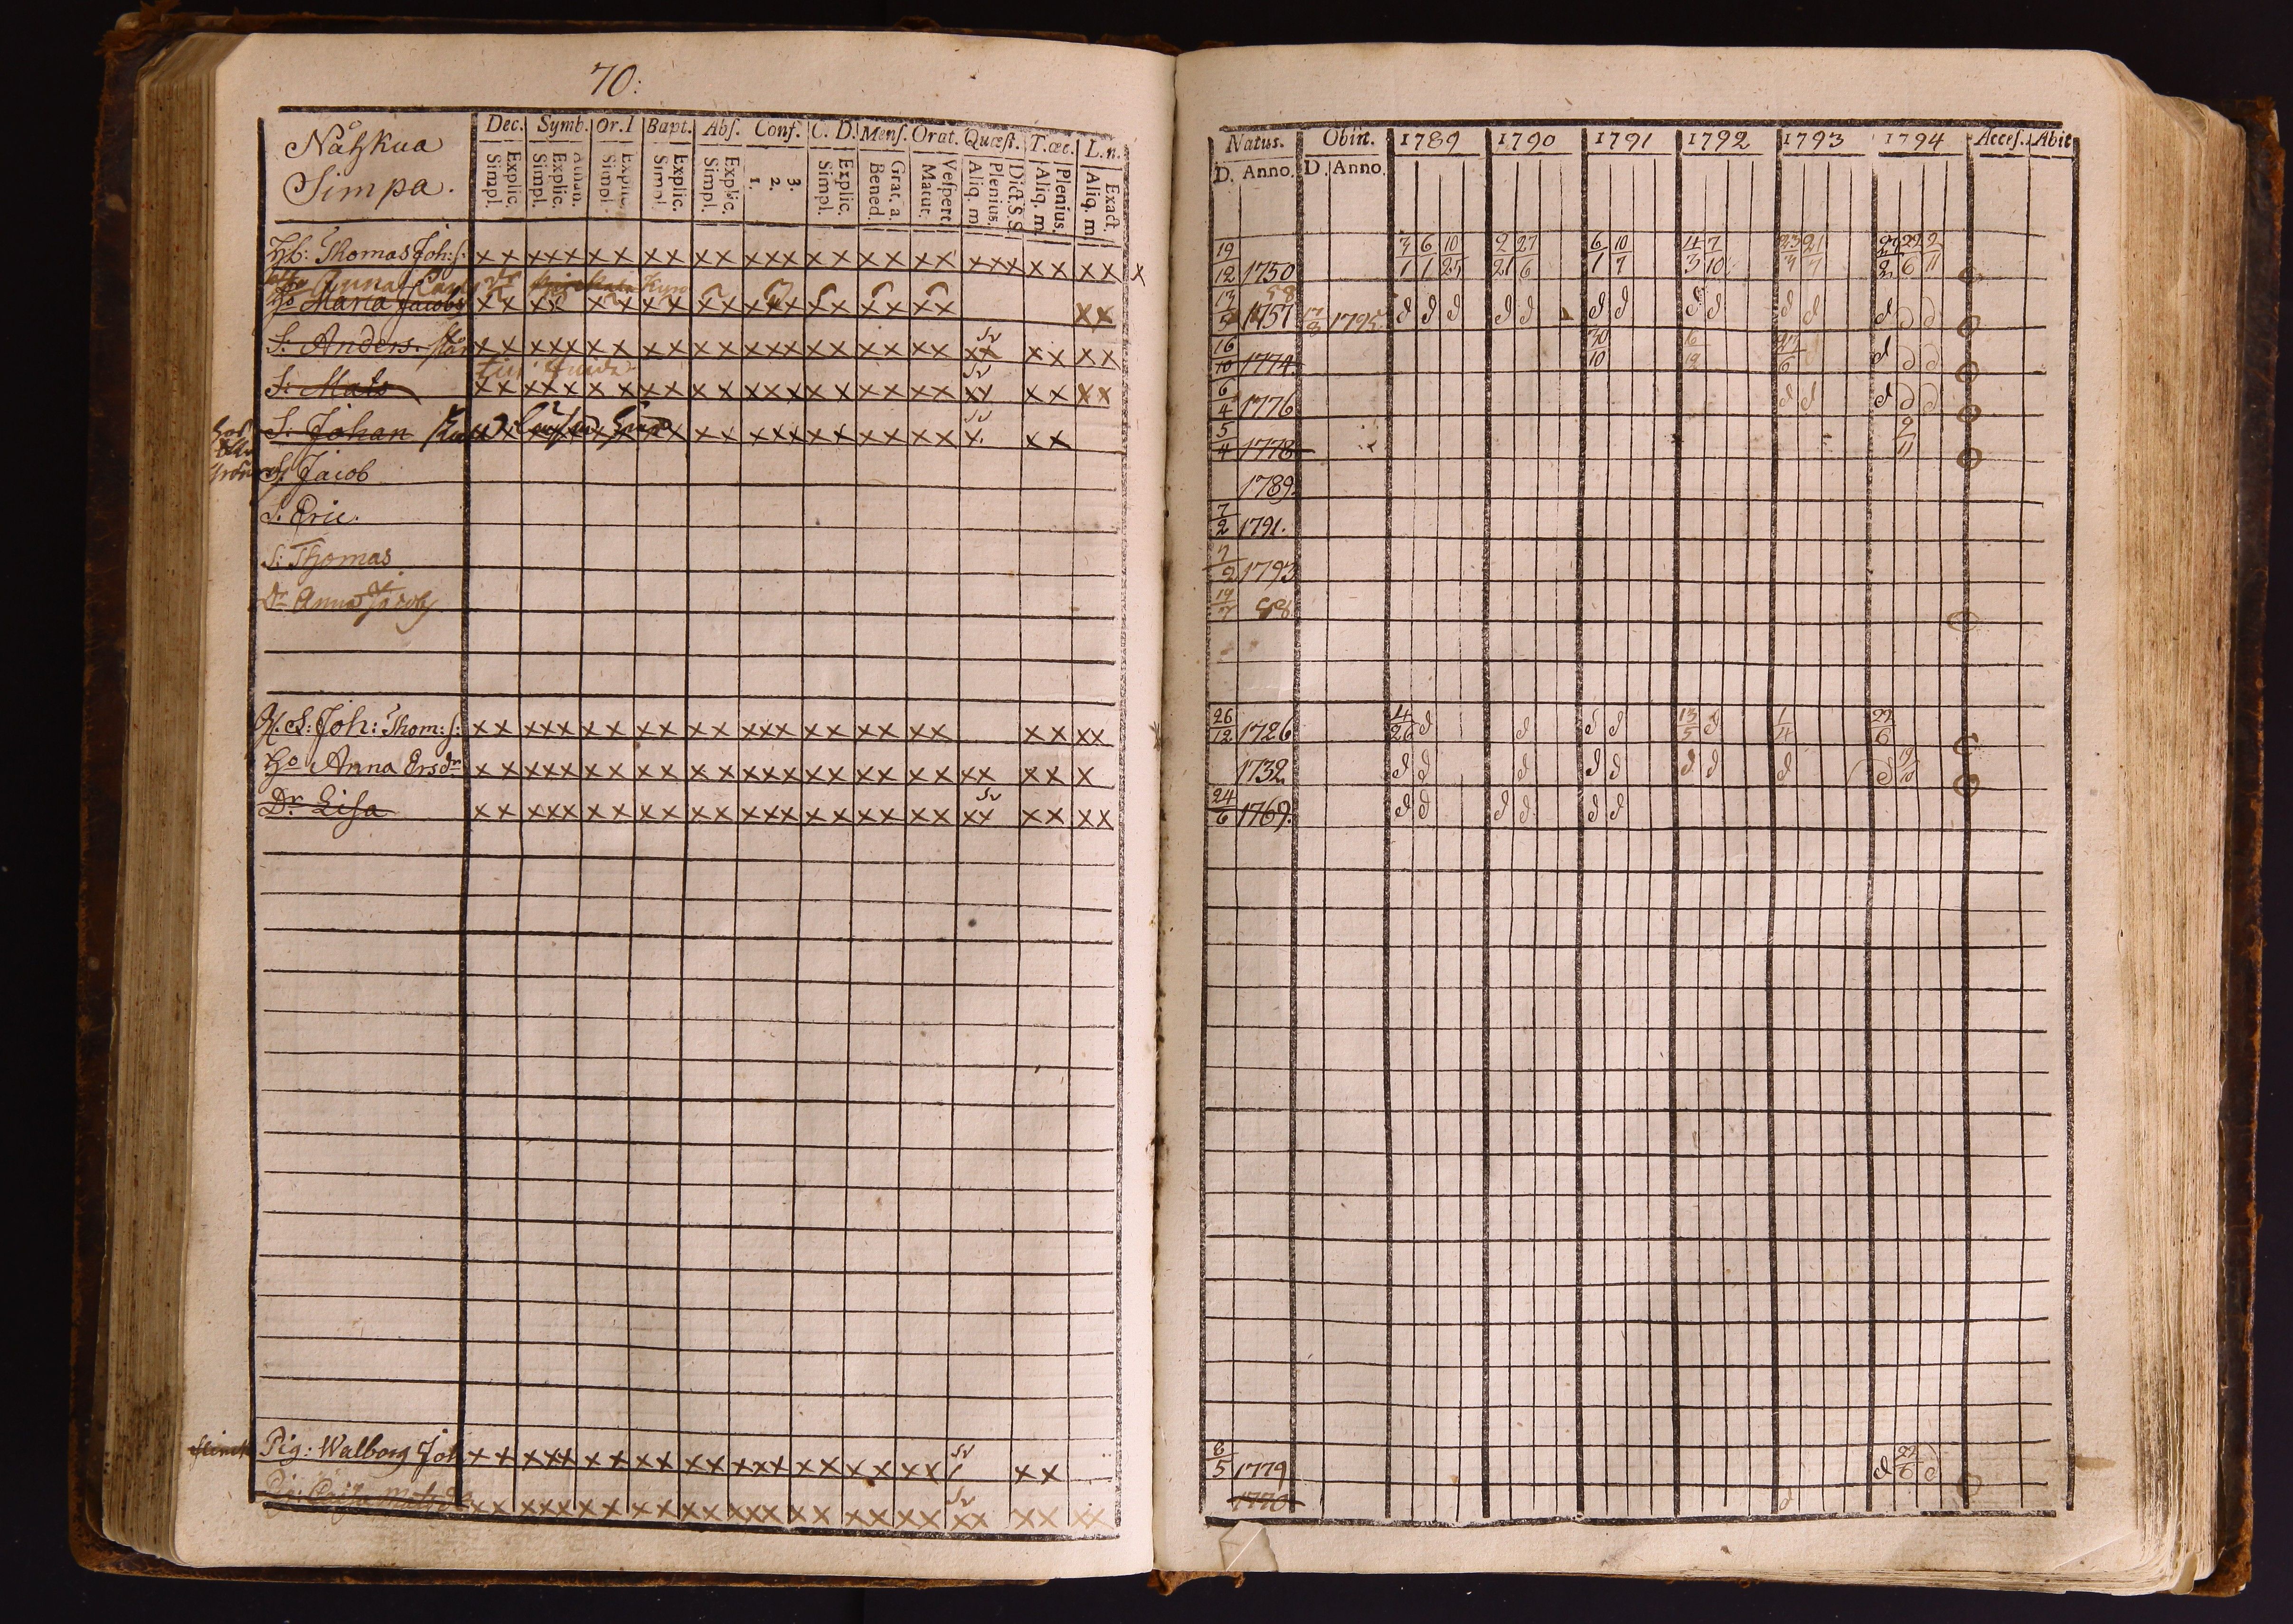 70:
Nåtzkua
Simpa.
Dec. Symb. Or. I Bapt. Abs. Conf. C. D. Mens. Orat. Quæst. T. œc. L. n.
Explic. Simpl. Athan. Explic. Simpl. Explic. Simpl. Explic. Simpl. Explic. Simpl. 3. 2. 1. Explic. Simpl. Grat. a. Bened. Vespert. Matut. Dict. S. S. Plenius. Aliq. m. Plenius. Aliq. m. Exact. Aliq. m.
Hb: Thomas Joh: s: x x x x x x x x x x x x x x x x x x x x x x x x x x x x x
Anna Carls dr Kyro
Ho Maria Jacobs x x x x x x x x x x x x x x x x x x x x x x
S: Anders. x x x x x x x x x x x x x x x x x x x x sv x x x x x x
S: Mats x x x x x x x x x x x x x x x x x x x x sv x x x x x x
S: Johan x x x x x x x x x x x x x x x x x x x x sv x x x
S: Jacob
S. Eric.
S: Thomas
Dr Anna Jacob
S: Joh: Thom: s: x x x x x x x x x x x x x x x x x x x x x x x x
Ho Anna Ersdr x x x x x x x x x x x x x x x x x x x x x x x x x
Dr. Lisa x x x x x x x x x x x x x x x x x x x x sv x x x x x x
Pig: Walborg Joh x x x x x x x x x x x x x x x x x x x x sv x x
x x x x x x x x x x x x x x x x x x x x sv x x x x x x
Natus. Obiit. 1789 1790 1791 1792 1793 1794 Acces. Abit
D. Anno. D. Anno.
19/12 1750 3/1 6/1 10/25 2/21 27/6 6/1 10/7 4/3 7/10 23/3 21/7 27/2 22/6 2/11
1757 17/3 1795 d d d d d d d d d d d d d d
16/10 1774. 30/10 16/19 27/6 d d d
6/4 1776 d d d d d
5/4 1778 9/11
1789.
7/2 1791.
7/2 1793
19/7 88
26/12 1726 4/26 d d d d 13/5 d 1/4 22/6
1732 d d d d d d d d d 19/10
24/6 1769. d d d d d d
8/5 1779 d 22/6 d
1770 d